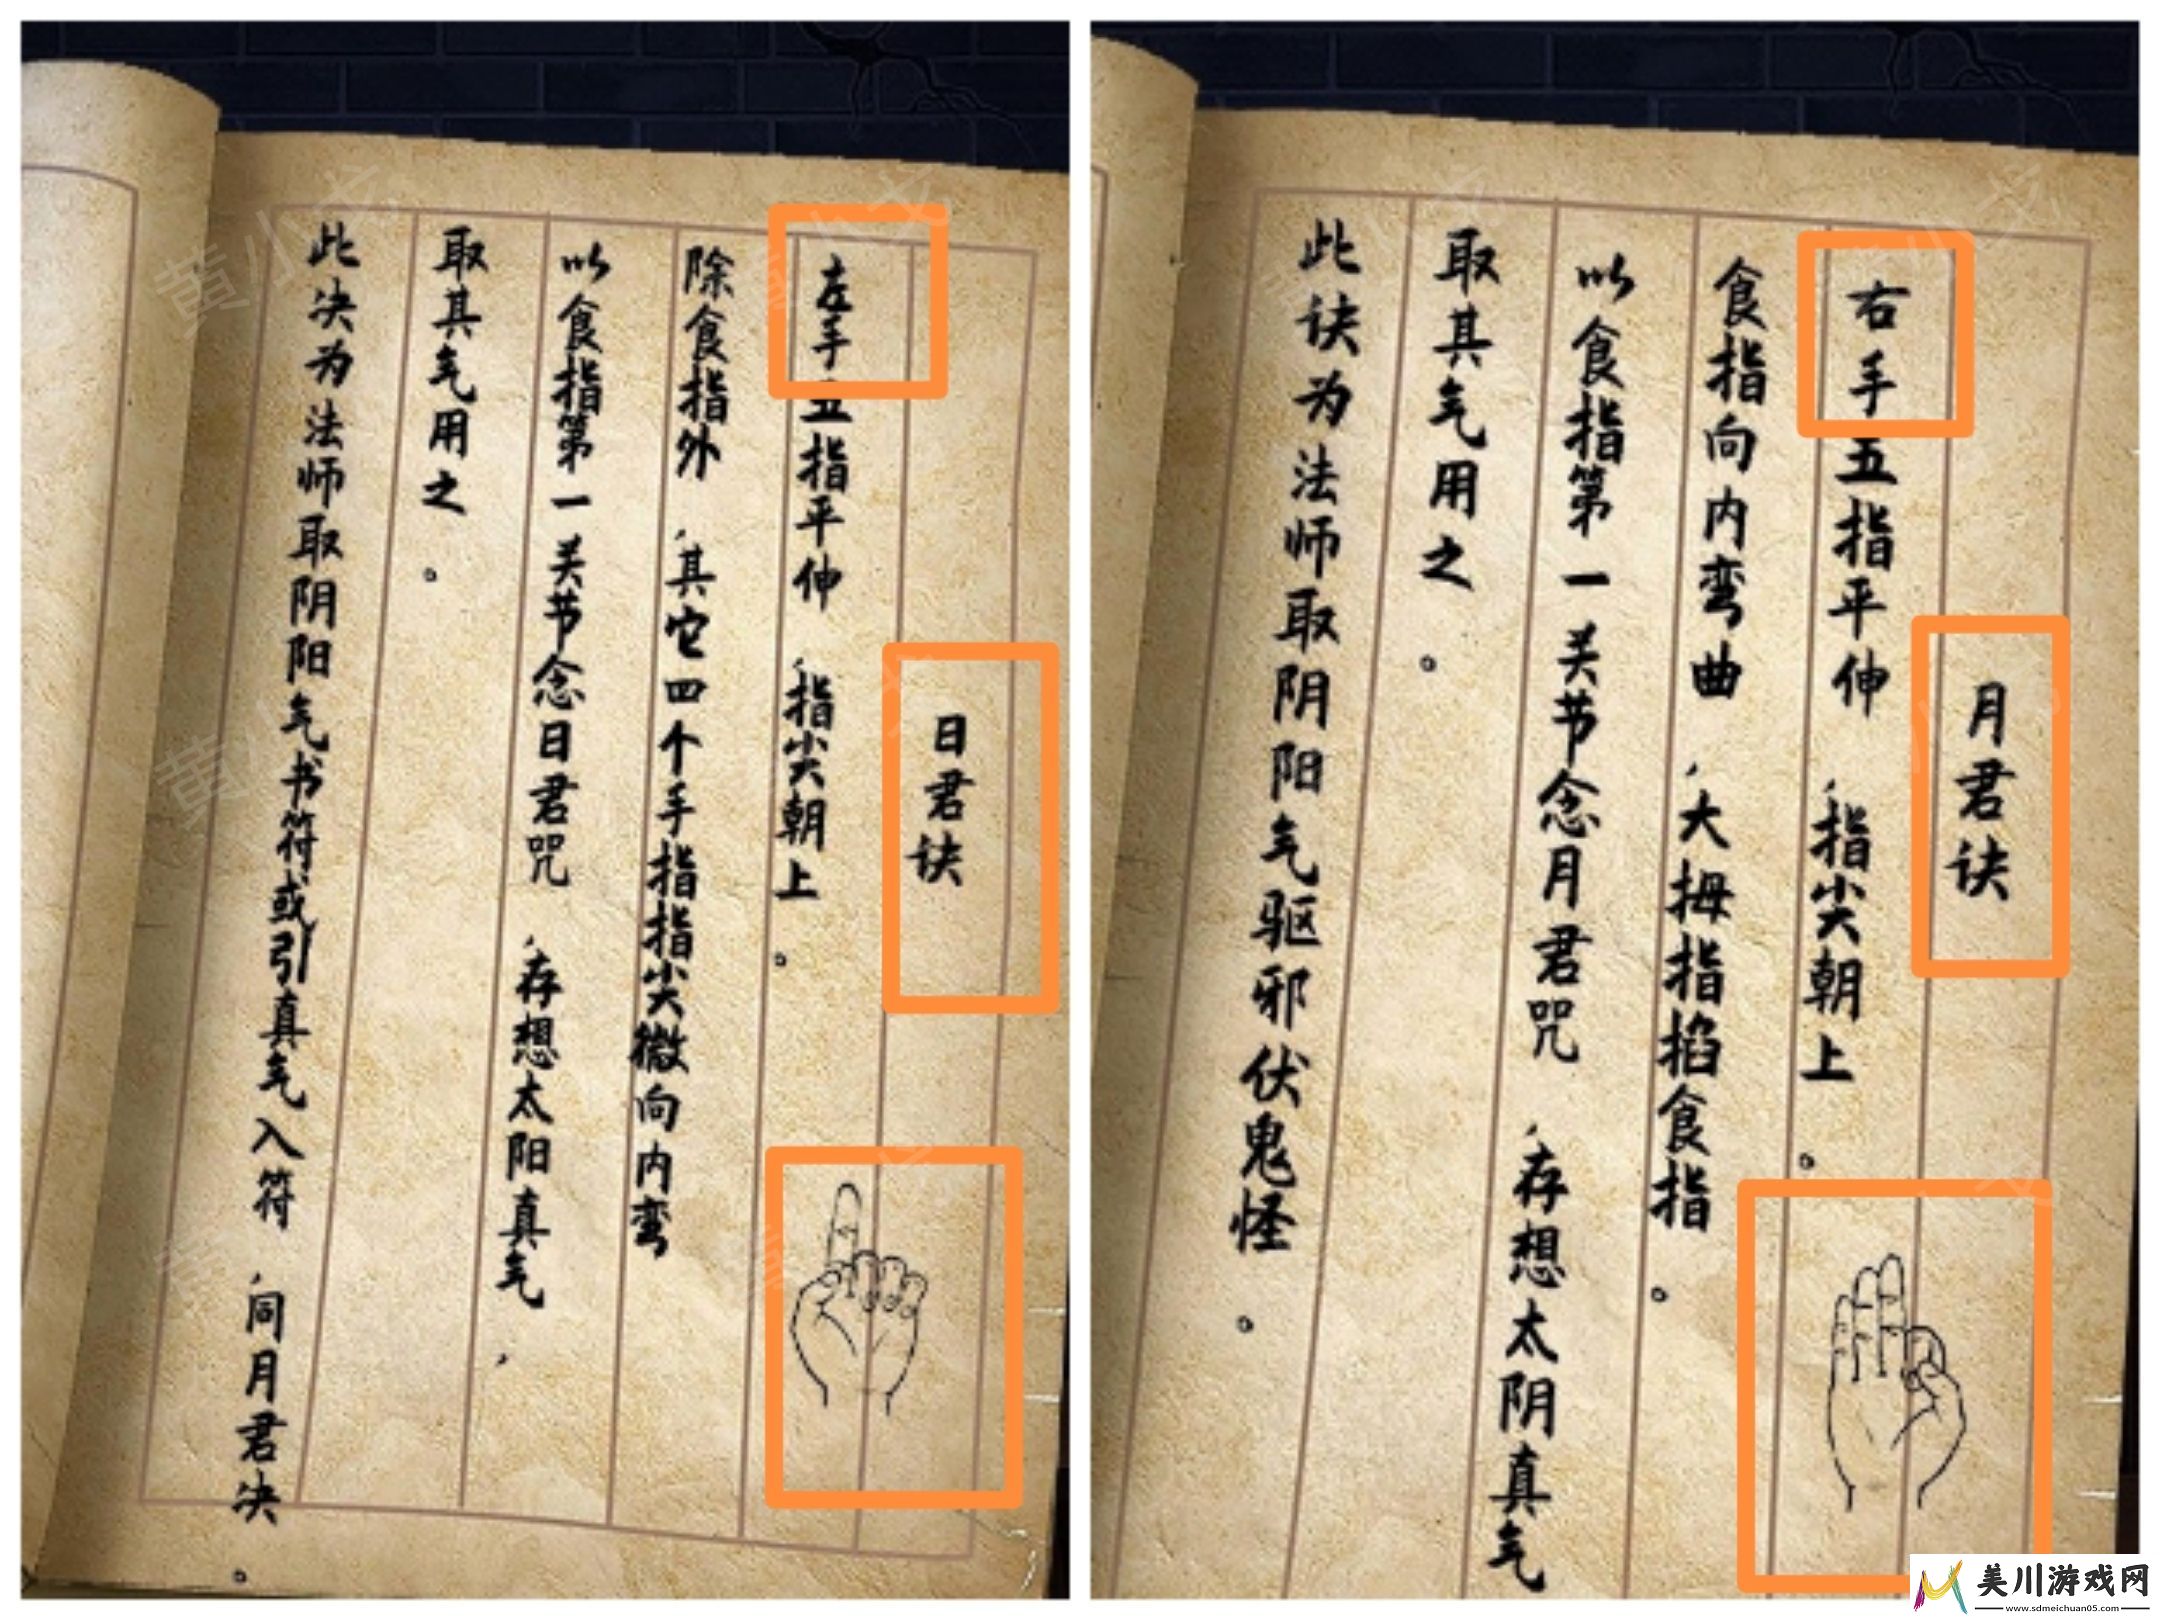 日君诀
左手五指平伸，指尖朝上。
除食指外，其它四个手指指尖微向内弯
以食指第一关节念日君咒，存想太阳真气，
取其气用之。
此决为法师取阴阳气书符或引真气入符，同月君决。
月君诀
右手五指平伸，指尖朝上。
食指向内弯曲，大拇指掐食指。
以食指第一关节念月君咒，存想太阴真气
取其气用之。
此诀为法师取阴阳气驱邪伏鬼怪。
黄小戈
美川游戏网
www.sdmeichuan05.com